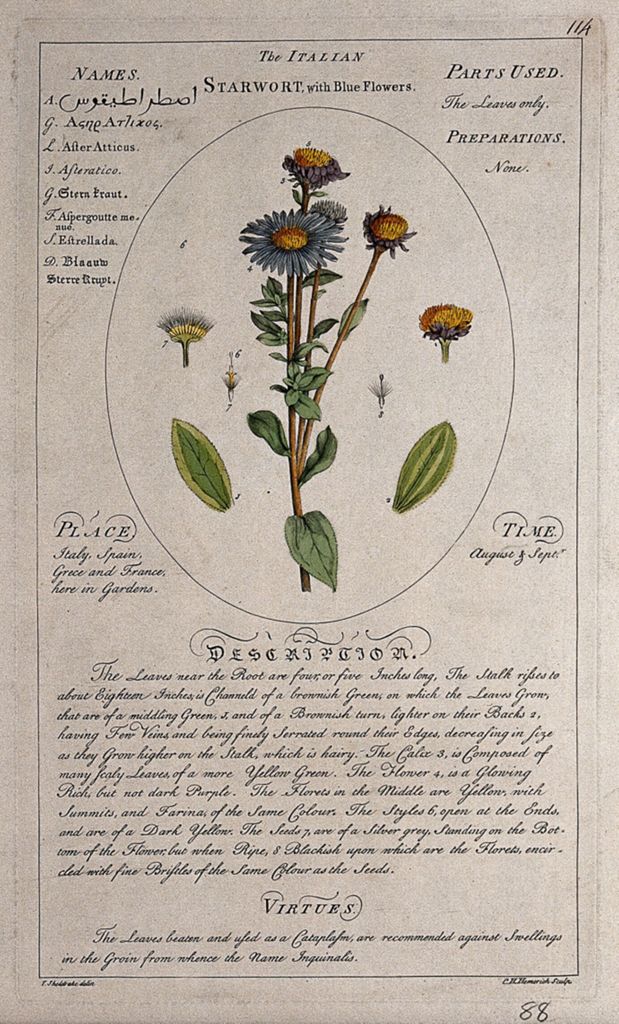 114
The ITALIAN
STARWORT, with Blue Flowers.
NAMES.
A. اصطراطيقوس
G. Αςηρ Ατλικος.
L. After Atticus.
I. Afteratico.
G. Stern kraut.
F. Afpergoutte me-
nue.
S. Eftrellada.
D. Blaauw
Sterre Kruyt.
PARTS USED.
The Leaves only.
PREPARATIONS.
None.
5
3
6
4
7
6
7
8
3
2
PLACE
Italy, Spain,
Grece and France,
here in Gardens.
TIME.
August & Septr.
DESCRIPTION.
The Leaves near the Root are four, or five Inches long, The Stalk rifes to
about Eighteen Inches, is Channeld of a brownish Green, on which the Leaves Grow,
that are of a middling Green, 1, and of a Brownish turn, lighter on their Backs 2,
having Few Veins and being finely Serrated round their Edges, decreasing in size
as they Grow higher on the Stalk, which is hairy. The Calix 3, is Composed of
many fcaly Leaves, of a more Yellow Green. The Flower 4, is a Glowing
Rich, but not dark Purple. The Florets in the Middle are Yellow, with
Summits, and Farina, of the Same Colour. The Styles 6, open at the Ends,
and are of a Dark Yellow. The Seeds 7, are of a Silver grey, Standing on the Bot-
tom of the Flower, but when Ripe, 8 Blackish upon which are the Florets, encir-
cled with fine Briftles of the Same Colour as the Seeds.
VIRTUES.
The Leaves beaten and ufed as a Cataplafm, are recommended against Swellings
in the Groin from whence the Name Inguinalis.
T. Sheldrake delin
C.H. Hemerich Sculp.
88